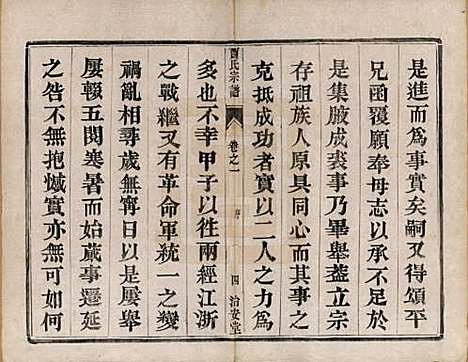 是進而爲事實矣嗣又得頌平
兄函覆願奉母志以承于是于
是集腋成裘事乃畢舉蓋立宗
存祖族人原具同心而其事之
克抵成功者實以二人之力爲
賈氏宗譜
卷之一
序
四
治安堂
多也不幸甲子以徃兩經江浙
之戰繼又有革命軍統一之變
禍亂相尋歲無寧日以是屢舉
屢輟五閱寒暑而始蕆事遷延
之咎不無抱憾實亦無可如何